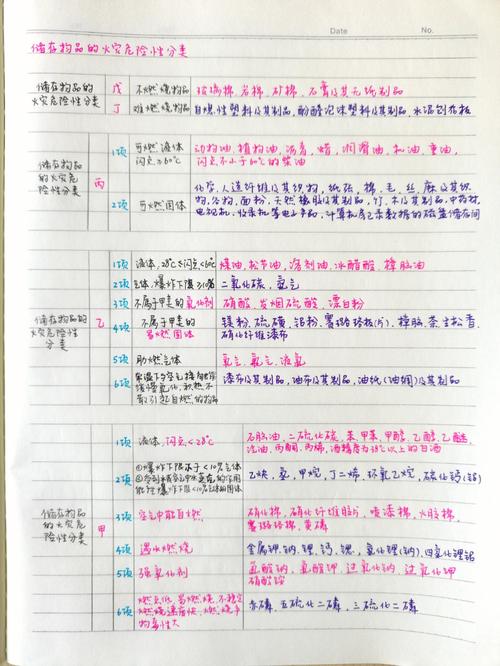 Date No.
储存物品的火灾危险性分类
储存物品的火灾危险性分类
戊 不燃烧物品 玻璃棉、岩棉、矿棉、石膏及其无纸制品
丁 难燃烧物品 自熄性塑料及其制品,酚醛泡沫塑料及其制品,水泥刨花板
储存物品的火灾危险性分类
丙
1项 可燃液体 闪点≥60℃ 动物油、植物油、沥青、蜡、润滑油、机油、重油,
闪点不小于60℃的柴油
2项 可燃固体 化学、人造纤维及其织物,纸张、棉、毛、丝、麻及其织
物,谷物,面粉,天然橡胶及其制品,竹、木及其制品,中药材,
电视机、收录机等电子产品,计算机房已录数据的磁盘储存间
储存物品的火灾危险性分类
乙
1项 液体、28℃≤闪点<60℃ 煤油、松节油、溶剂油、冰醋酸、樟脑油
2项 气体、爆炸下限≥10% 氨气
3项 不属于甲类的氧化剂 硝酸、发烟硫酸、漂白粉
4项 不属于甲类的易燃固体 镁粉、硫磺、铝粉、赛璐珞板(片)、樟脑、萘、生松香、
硝化纤维漆布
5项 助燃气体 氧气、氟气、液氯
6项 常温下与空气接触能缓慢氧化,积热不散引起自燃的物品 漆布及其制品,油布及其制品,油纸(油绸)及其制品
储存物品的火灾危险性分类
甲
1项 液体,闪点<28℃ 石脑油、二硫化碳、苯、甲苯、甲醇、乙醇、乙醚、
汽油、丙酮、丙烯、酒精度为38℃以上的白酒
2项 ①爆炸下限 <10%气体
爆炸下限<10%气体的固体
乙炔、氢、甲烷、丁二烯、环氧乙烷、碳化钙
3项 空气中能自燃 硝化棉、硝化纤维胶片、喷漆棉、火胶棉、
赛璐珞棉、黄磷
4项 遇水燃烧 金属钾、钠、锂、钙、锶,氢化锂(钠)、四氢化锂铝
5项 强氧化剂 氯酸钠、氯酸钾、过氧化钠、过氧化钾、
硝酸铵
6项 赤磷、五硫化二磷、三硫化二磷